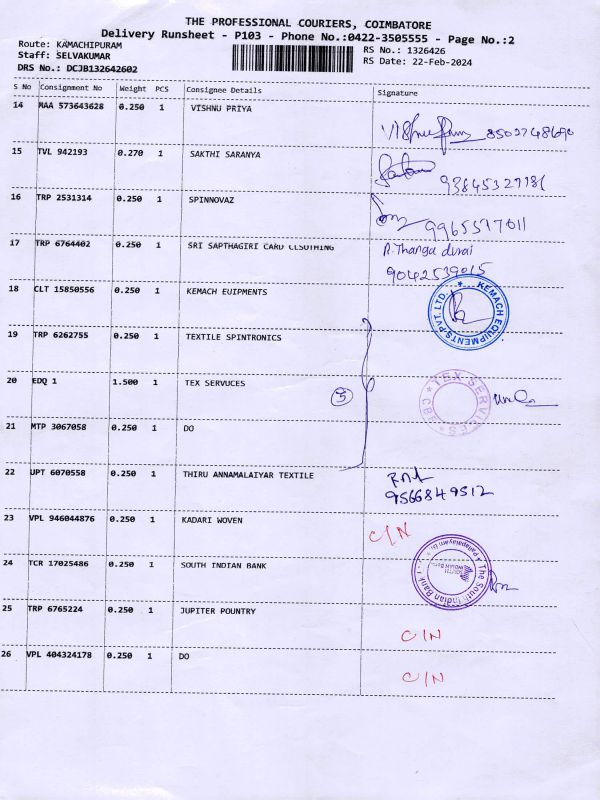 THE PROFESSIONAL COURIERS, COIMBATORE
Delivery Runsheet - P103 - Phone No.:0422-3505555 - Page No.:2
Route: KAMACHIPURAM RS No.: 1326426
Staff: SELVAKUMAR RS Date: 22-Feb-2024
DRS No.: DCJB132642602
S No Consignment No Weight PCS Consignee Details Signature
14 MAA 573643628 0.250 1 VISHNU PRIYA
15 TVL 942193 0.270 1 SAKTHI SARANYA
9384532718
16 TRP 2531314 0.250 1 SPINNOVAZ
9965577011
17 TRP 6764402 0.250 1 SRI SAPTHAGIRI CARD CLSOTHING R. Thanga durai
9042539015
18 CLT 15850556 0.250 1 KEMACH EUIPMENTS KEMACH EQUIPMENTS PVT. LTD.
19 TRP 6262755 0.250 1 TEXTILE SPINTRONICS
20 EDQ 1 1.500 1 TEX SERVUCES 5 TEX SERVICES CBE
21 MTP 3067058 0.250 1 DO
22 UPT 6070558 0.250 1 THIRU ANNAMALAIYAR TEXTILE
9566849512
23 VPL 946044876 0.250 1 KADARI WOVEN C/N
24 TCR 17025486 0.250 1 SOUTH INDIAN BANK The South Indian Bank
25 TRP 6765224 0.250 1 JUPITER POUNTRY C/N
26 VPL 404324178 0.250 1 DO C/N